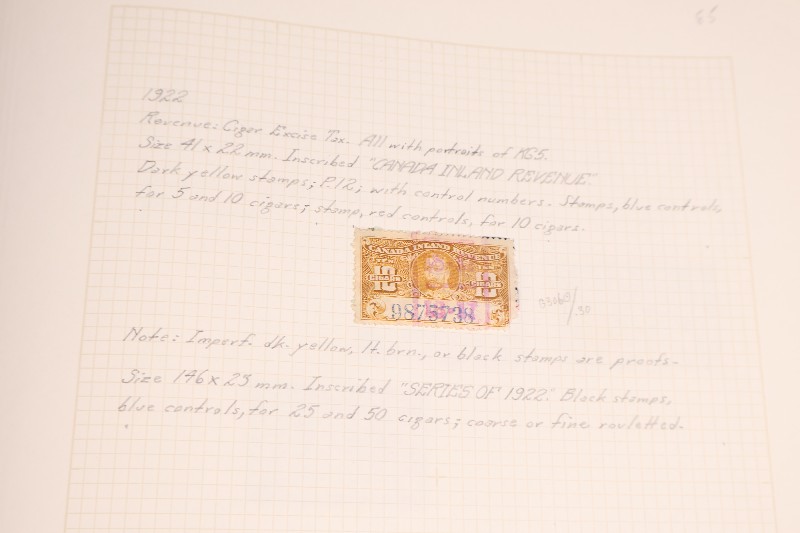 85
1922
Revenue: Cigar Excise Tax. All with portraits of KG5.
Size 41 x 22 mm. Inscribed "CANADA INLAND REVENUE".
Dark yellow stamps; P.12; with control numbers. Stamps, blue controls,
for 5 and 10 cigars; stamp, red controls, for 10 cigars.
CANADA INLAND REVENUE
10 10
CIGARS CIGARS
9875738
Note: Imperf. dk. yellow, lt. brn., or black stamps are proofs.
Size 146 x 23 mm. Inscribed "SERIES OF 1922". Black stamps,
blue controls, for 25 and 50 cigars; coarse or fine rouletted.